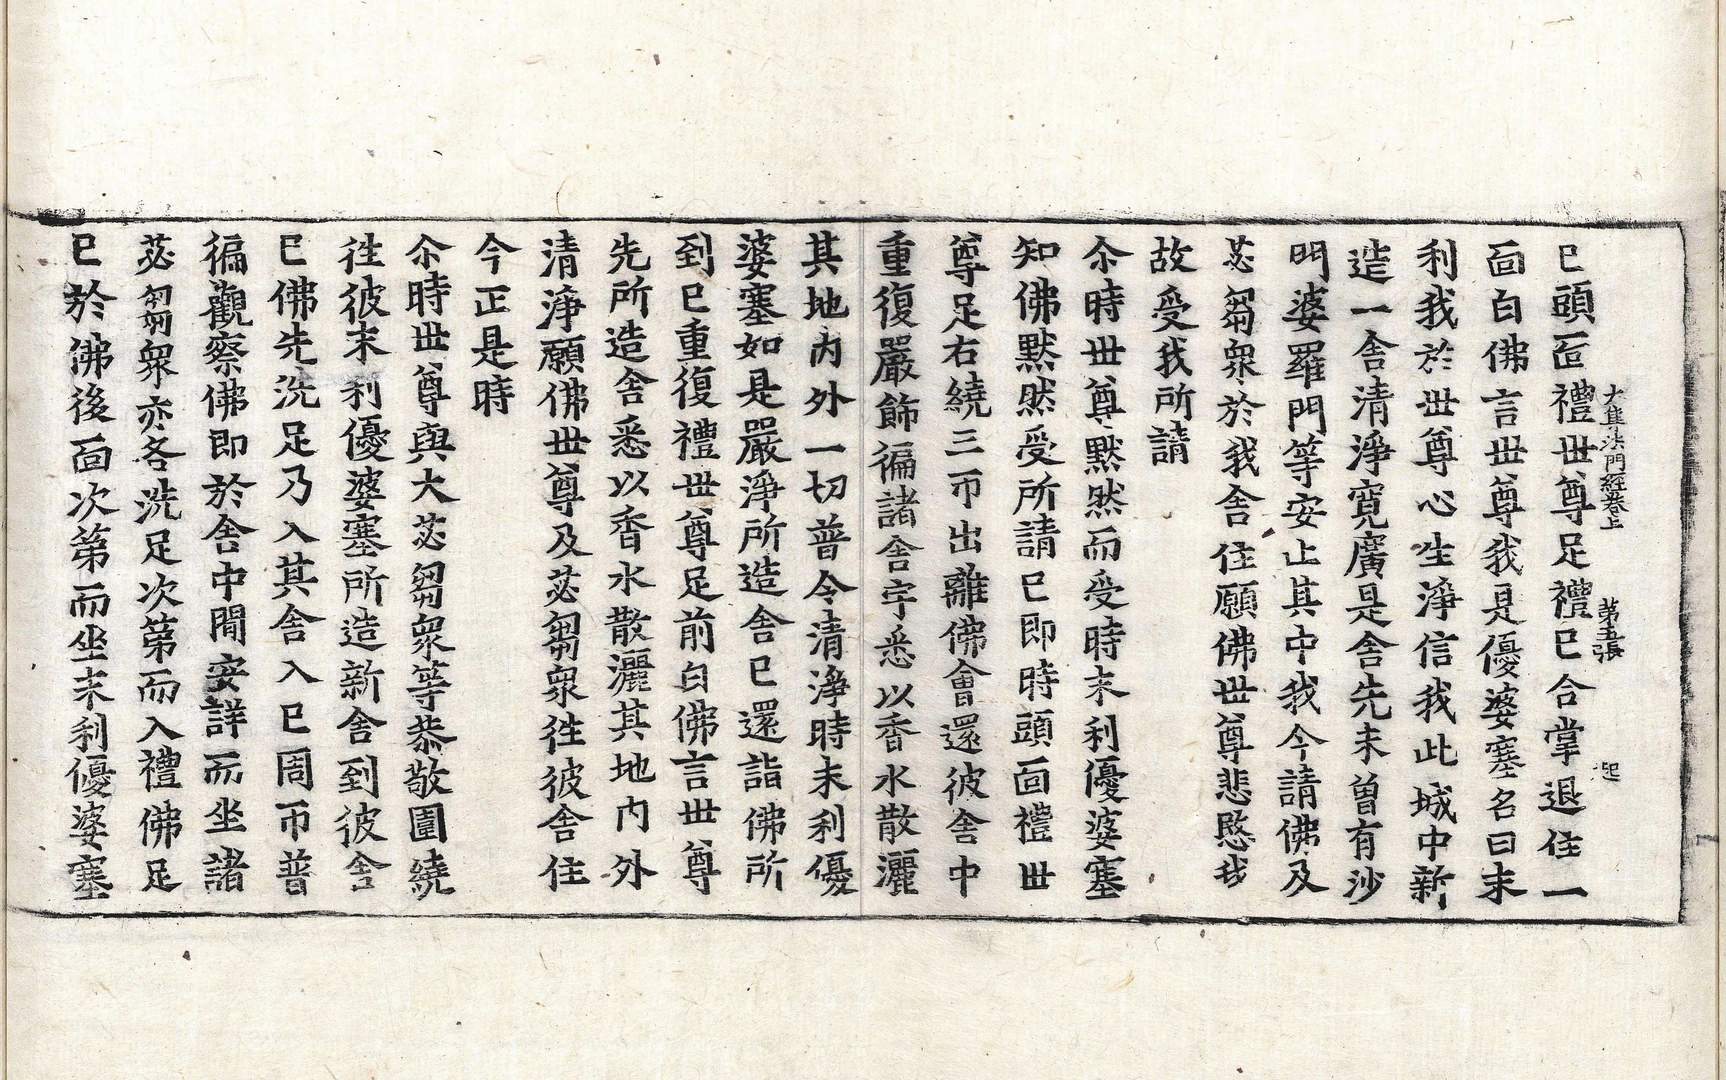 大集法門經卷上 第五張 起
已頭面禮世尊足禮已合掌退住一
面白佛言世尊我是優婆塞名曰末
利我於世尊心生淨信我此城中新
造一舍清淨寬廣是舍先未曾有沙
門婆羅門等安止其中我今請佛及
苾芻衆於我舍住願佛世尊悲愍我
故受我所請
尒時世尊黙然而受時末利優婆塞
知佛黙然受所請已即時頭面禮世
尊足右繞三帀出離佛會還彼舍中
重復嚴飾徧諸舍宇悉以香水散灑
其地內外一切普令清淨時末利優
婆塞如是嚴淨所造舍已還詣佛所
到已重復禮世尊足前白佛言世尊
先所造舍悉以香水散灑其地內外
清淨願佛世尊及苾芻衆徃彼舍住
今正是時
尒時世尊與大苾芻衆等恭敬圍繞
徃彼末利優婆塞所造新舍到彼舍
已佛先洗足乃入其舍入已周帀普
徧觀察佛即於舍中閒安詳而坐諸
苾芻衆亦各洗足次第而入禮佛足
已於佛後面次第而坐末利優婆塞